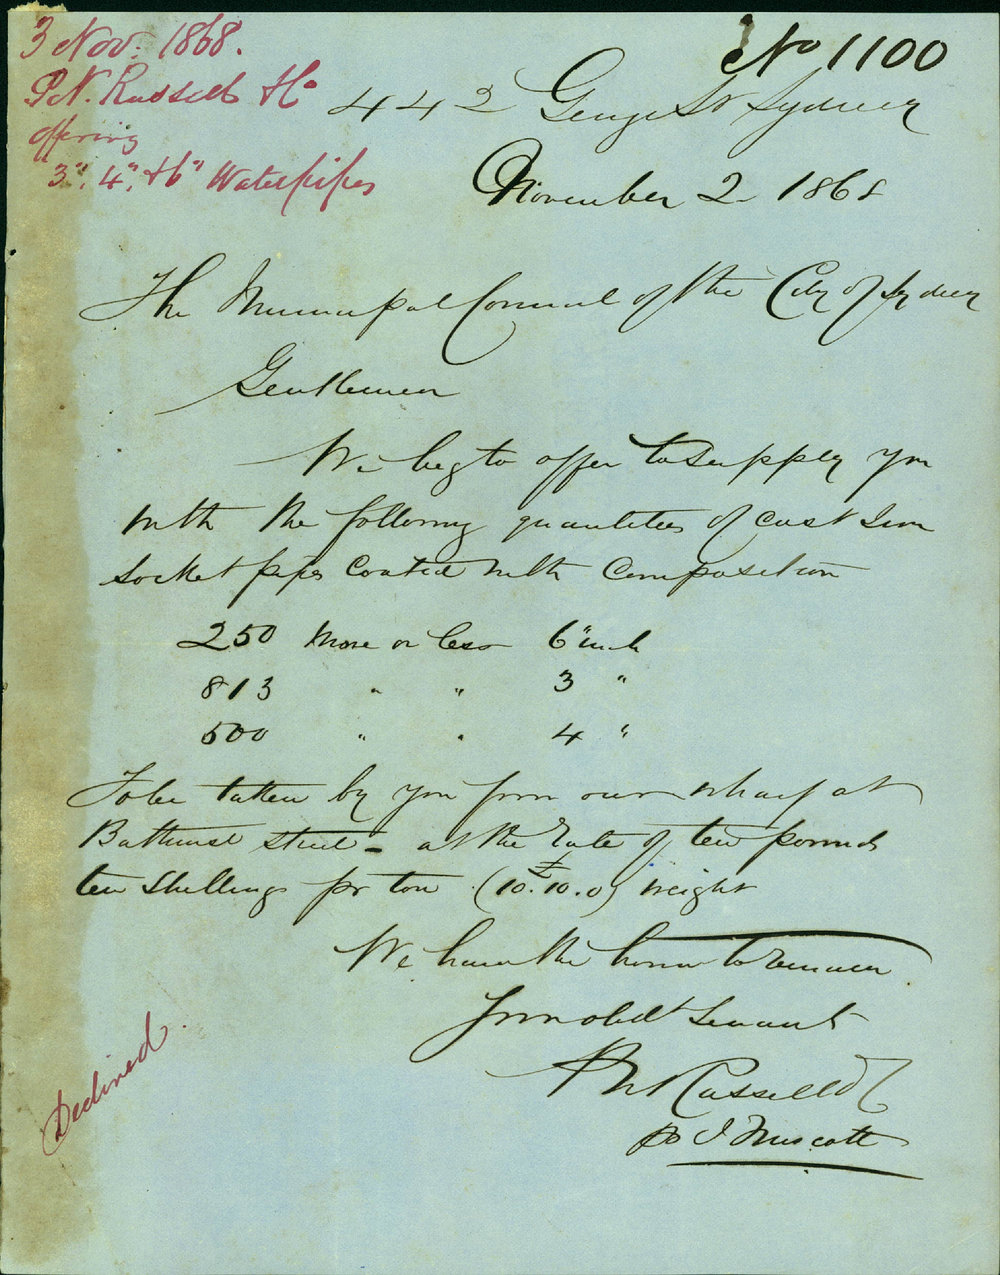 3 Nov: 1868.
P.N. Russell & Co
offering
3", 4", & 6" Waterpipes
No 1100
442 George St Sydney
November 2 1868
The Municipal Council of the City of Sydney
Gentlemen
We beg to offer to supply you
with the following quantities of cast Iron
socket pipes coated with Composition
250 more or less 6 "inch
813 " " 3 "
500 " " 4 "
To be taken by you from our wharf at
Bathurst street - at the rate of ten pounds
ten shillings pr ton (£10.10.0) weight
We have the honor to remain
Your obedt Servant
PN Russell & Co
po J Muscott
Declined.